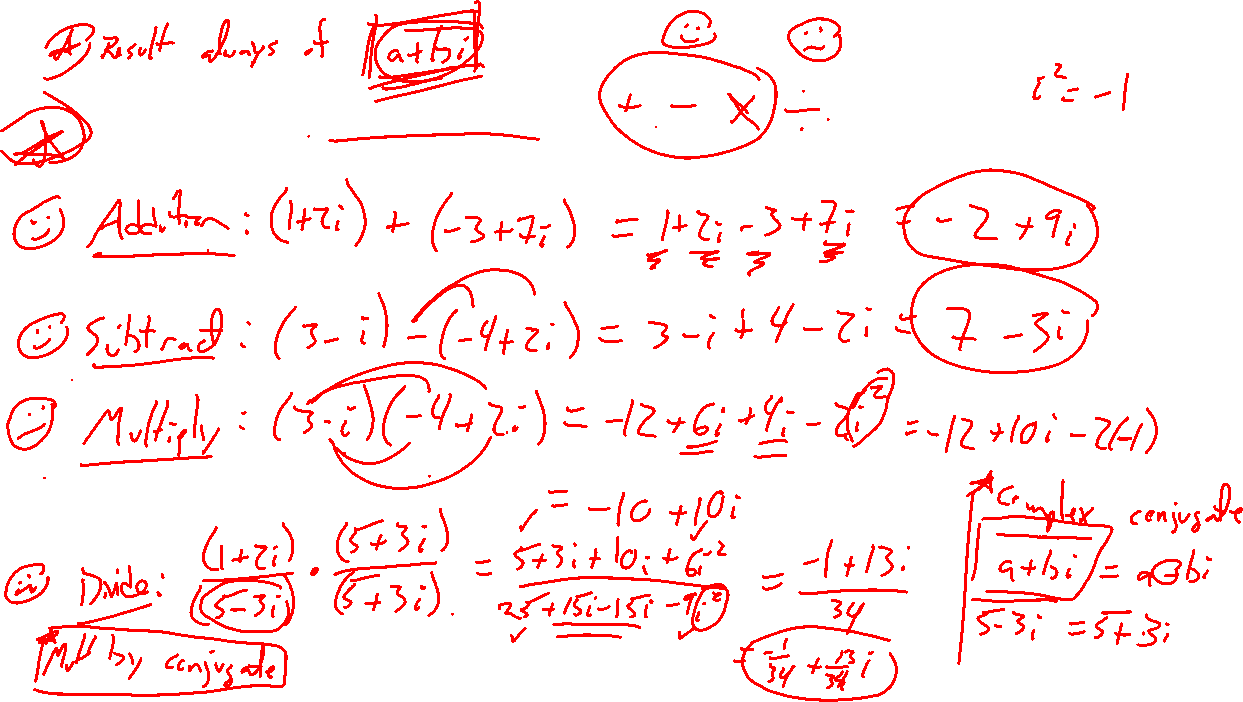 Result always of a+bi
+ - × ÷
i² = -1
Addition: (1+2i) + (-3+7i) = 1+2i-3+7i = -2+9i
Subtract: (3-i)-(-4+2i) = 3-i+4-2i = 7-3i
Multiply: (3-i)(-4+2i) = -12+6i+4i-2i² = -12+10i-2(-1)
= -10+10i
Divide: (1+2i)/(5-3i) · (5+3i)/(5+3i) = (5+3i+10i+6i²)/(25+15i-15i-9i²) = (-1+13i)/34
= -1/34 + 13/34 i
Mult by conjugate
Complex conjugate
a+bi = a-bi
5-3i = 5+3i